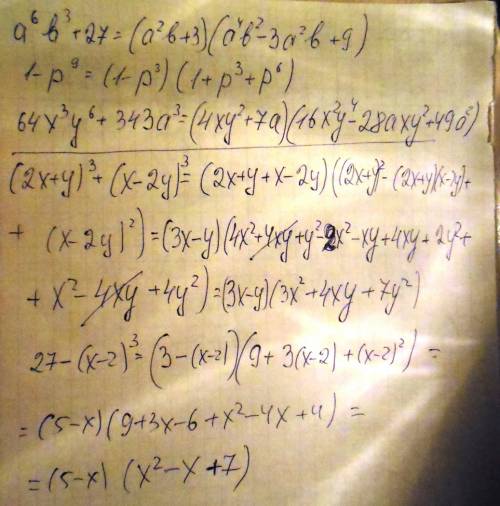 a⁶b³+27=(a²b+3)(a⁴b²-3a²b+9)
1-p⁹=(1-p³)(1+p³+p⁶)
64x³y⁶+343a³=(4xy²+7a)(16x²y⁴-28axy²+49a²)
(2x+y)³+(x-2y)³=(2x+y+x-2y)((2x+y)²-(2x+y)(x-2y)+
+(x-2y)²)=(3x-y)(4x²+4xy+y²-2x²-xy+4xy+2y²+
+x²-4xy+4y²)=(3x-y)(3x²+4xy+7y²)
27-(x-2)³=(3-(x-2))(9+3(x-2)+(x-2)²)=
=(5-x)(9+3x-6+x²-4x+4)=
=(5-x)(x²-x+7)